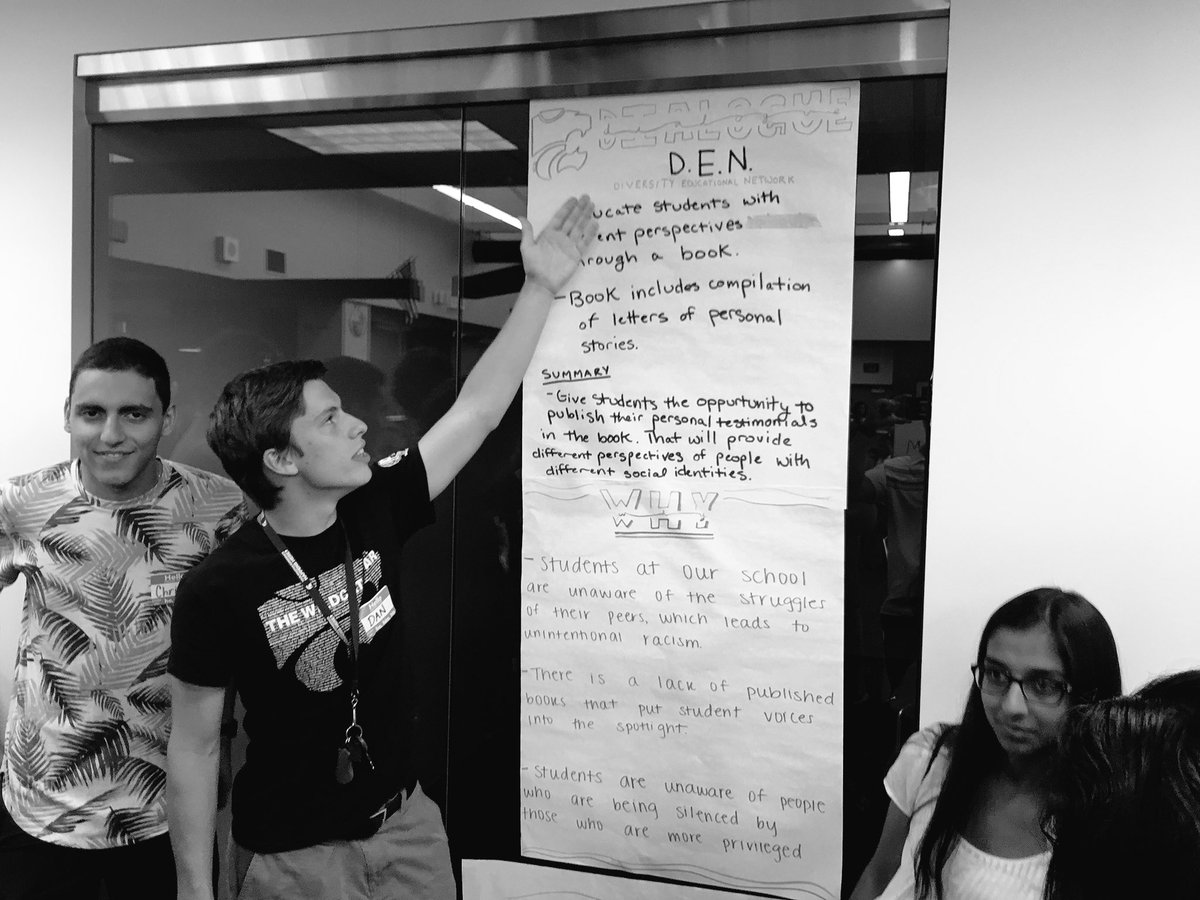 DIALOGUE
D.E.N.
DIVERSITY EDUCATIONAL NETWORK
ucate students with
ent perspectives
hrough a book.
-Book includes compilation
of letters of personal
stories.
SUMMARY
-Give students the opportunity to
publish their personal testimonials
in the book. That will provide
different perspectives of people with
different social identities.
WHY
-Students at our school
are unaware of the struggles
of their peers, which leads to
unintentional racism.
-There is a lack of published
books that put student voices
into the spotlight.
-Students are unaware of people
who are being silenced by
those who are more privileged
Hello
Chri
THE WILDCAT
Hello
DAN